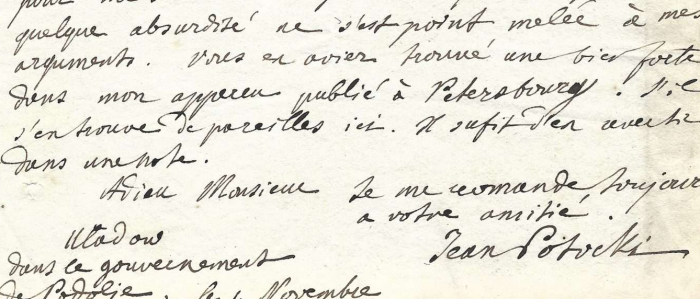 pour
quelque absurdité ne s'est point melée à mes
arguments. Vous en aviez trouvé une bien forte
dans mon apperçu publié à Petersbourg. S'il
s'en trouve de pareilles ici. Il sufit d'en avertir
dans une note.
Adieu Monsieur Je me recomande toujours
a votre amitié.
Uladow Jean Potocki
dans le gouvernement
de Podolie. Novembre